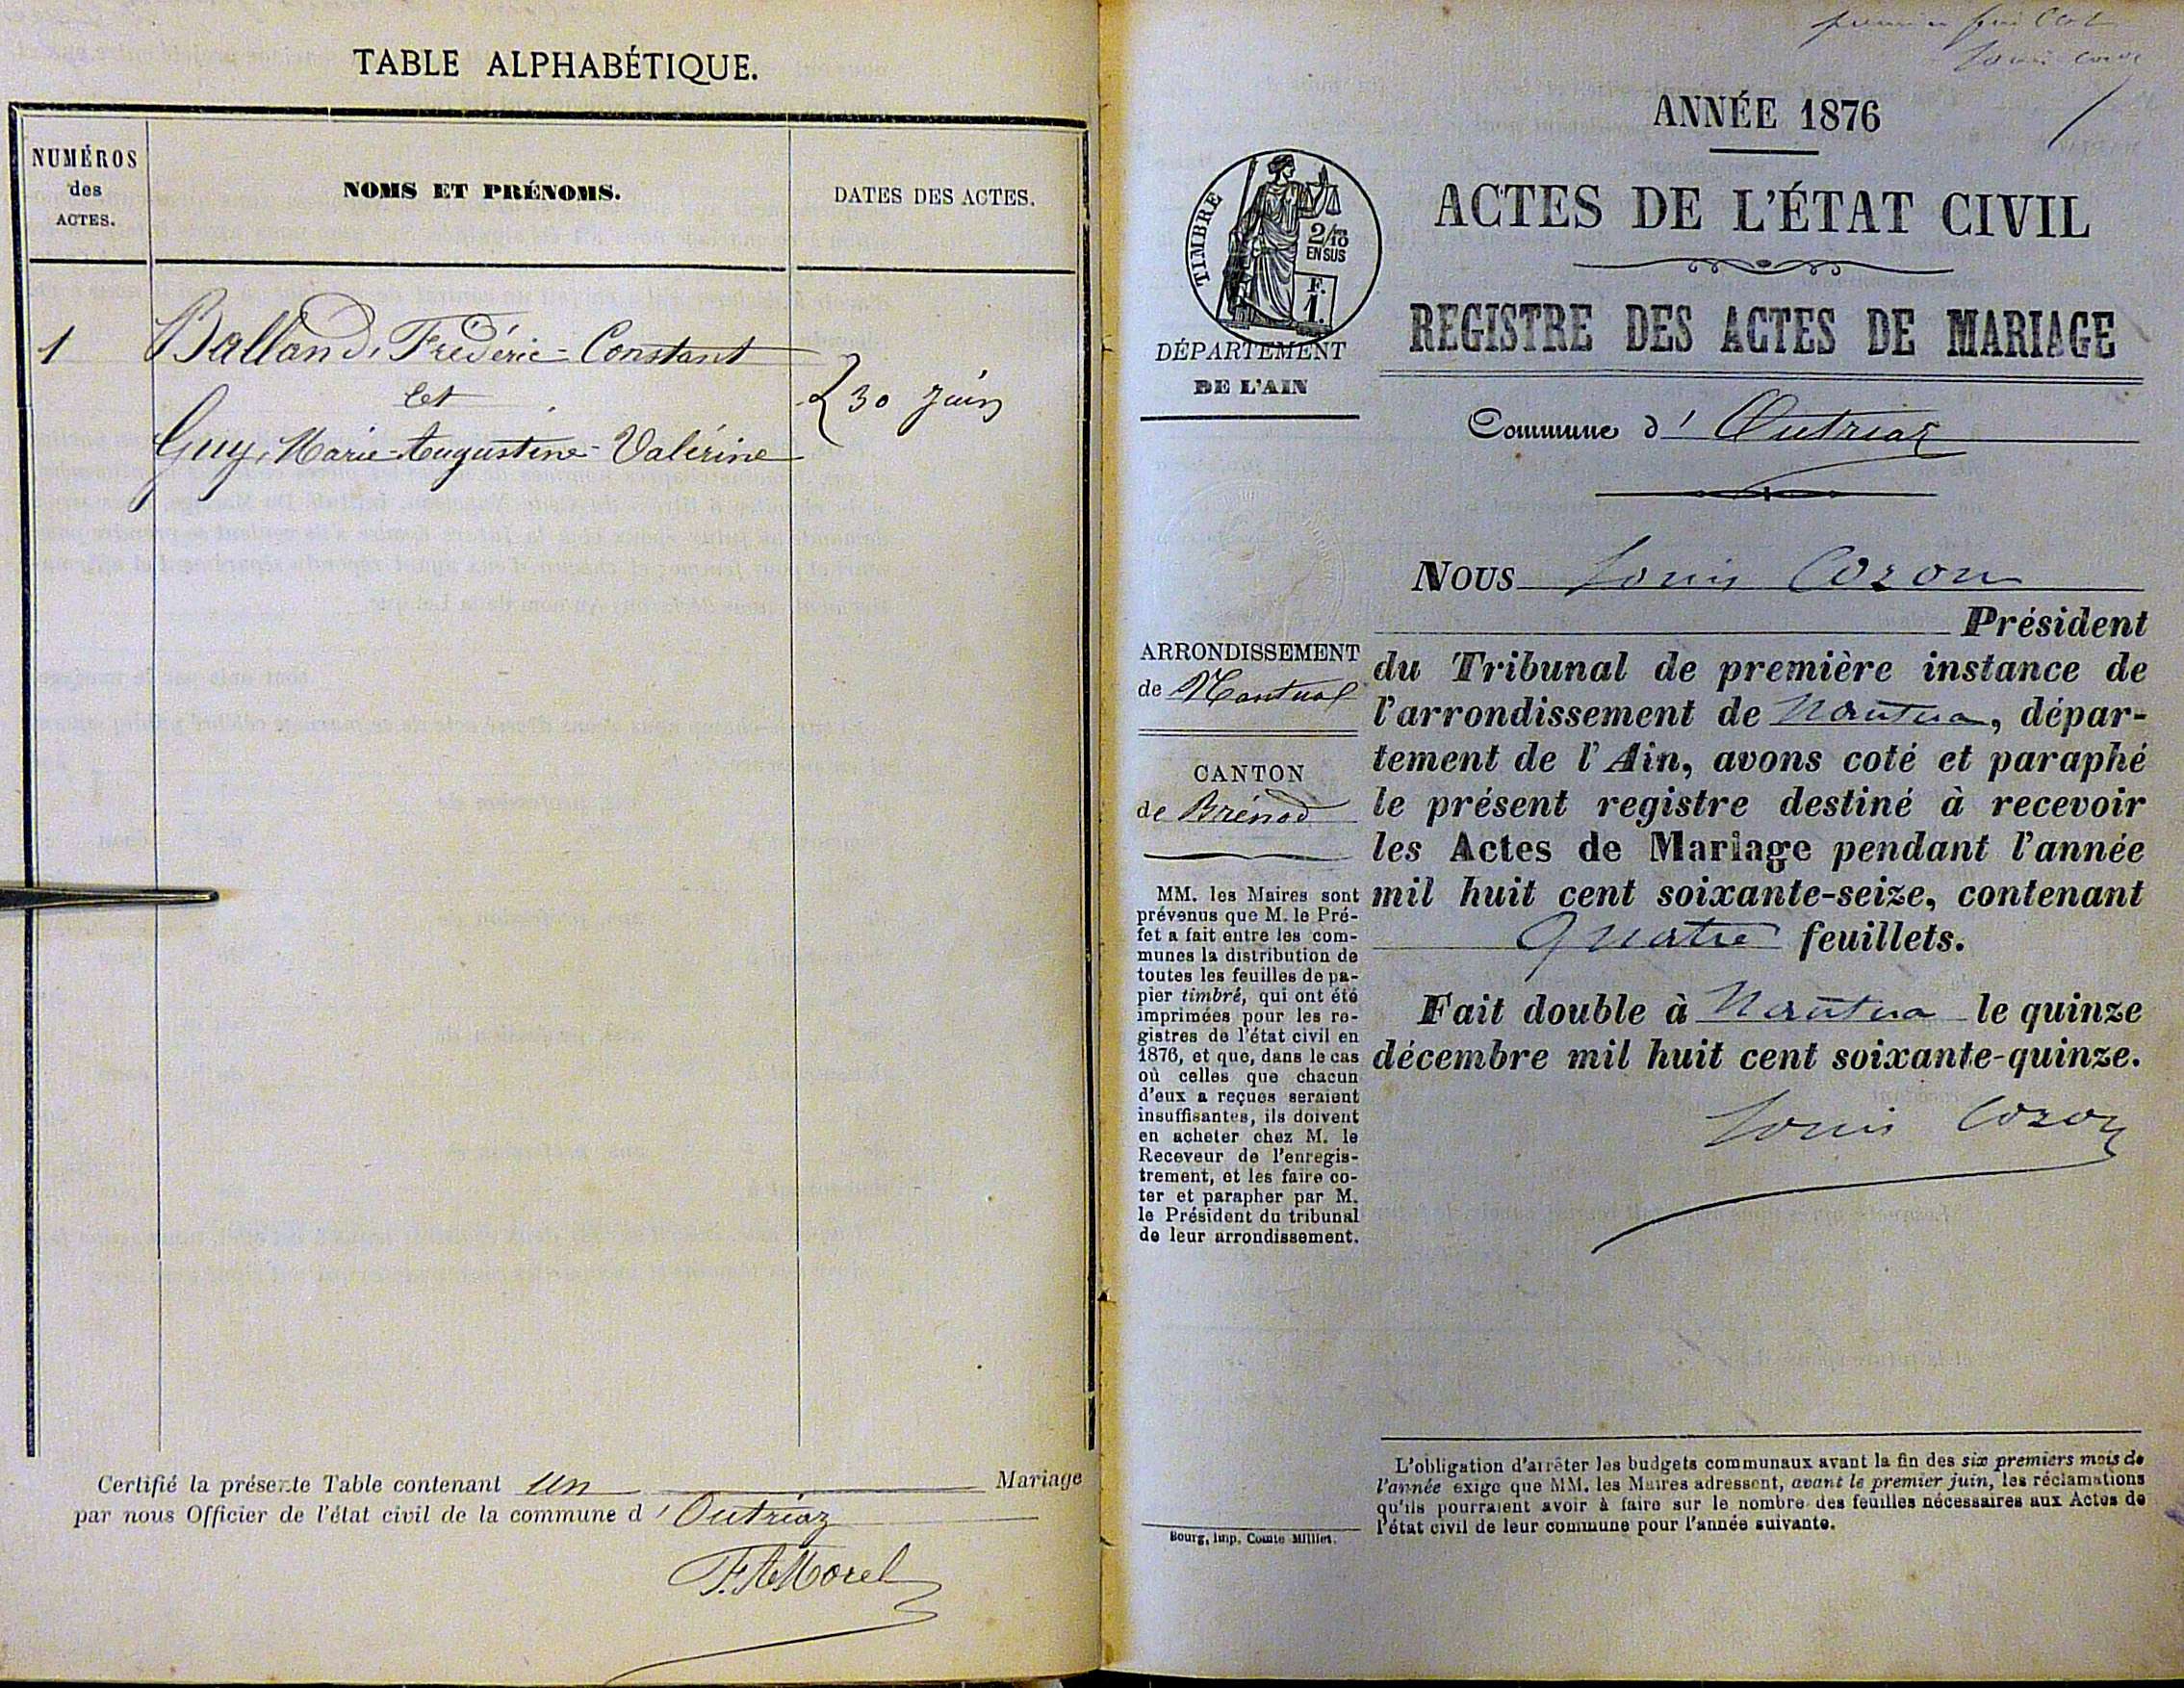 TABLE ALPHABÉTIQUE.
NUMÉROS
des
ACTES.
NOMS ET PRÉNOMS.
DATES DES ACTES.
1
Balland, Frédéric-Constant
et
Guy, Marie-Augustine-Valérine
30 juin
Certifié la présente Table contenant un Mariage
par nous Officier de l'état civil de la commune d'Outriaz
F. A. Morel
premier feuillet
Louis Cozon
ANNÉE 1876
ACTES DE L'ÉTAT CIVIL
TIMBRE
2/10
EN SUS
F.
1.
DÉPARTEMENT
DE L'AIN
REGISTRE DES ACTES DE MARIAGE
Commune d'Outriaz
ARRONDISSEMENT
de Nantua
CANTON
de Brénod
MM. les Maires sont
prévenus que M. le Pré-
fet a fait entre les com-
munes la distribution de
toutes les feuilles de pa-
pier timbré, qui ont été
imprimées pour les re-
gistres de l'état civil en
1876, et que, dans le cas
où celles que chacun
d'eux a reçues seraient
insuffisantes, ils doivent
en acheter chez M. le
Receveur de l'enregis-
trement, et les faire co-
ter et parapher par M.
le Président du tribunal
de leur arrondissement.
Bourg, Imp. Comte Milliet.
NOUS Louis Cozon
Président
du Tribunal de première instance de
l'arrondissement de Nantua, dépar-
tement de l'Ain, avons coté et paraphé
le présent registre destiné à recevoir
les Actes de Mariage pendant l'année
mil huit cent soixante-seize, contenant
Quatre feuillets.
Fait double à Nantua le quinze
décembre mil huit cent soixante-quinze.
Louis Cozon
L'obligation d'arrêter les budgets communaux avant la fin des six premiers mois de
l'année exige que MM. les Maires adressent, avant le premier juin, les réclamations
qu'ils pourraient avoir à faire sur le nombre des feuilles nécessaires aux Actes de
l'état civil de leur commune pour l'année suivante.